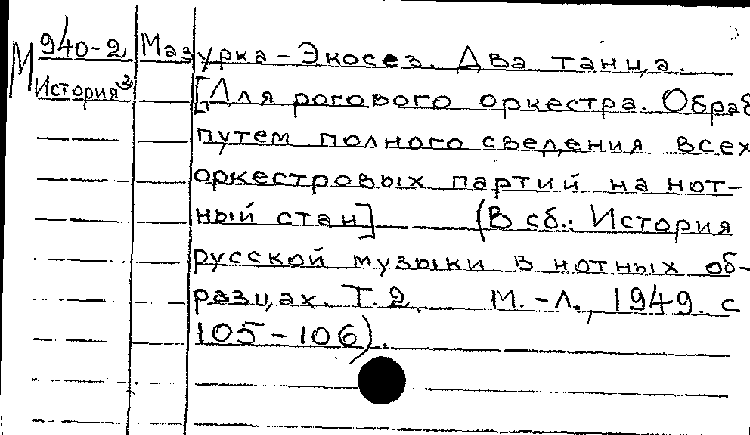 М 940-2 Мазурка-Экосез. Два танца.
История³ [Для рогового оркестра. Обраб
путем полного сведения всех
оркестровых партий на нот-
ный стан] (В сб.: История
русской музыки в нотных об-
разцах. Т.2. М.-Л., 1949 с
105-106).